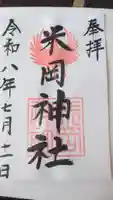 奉拝
米岡神社
令和八年七月十一日